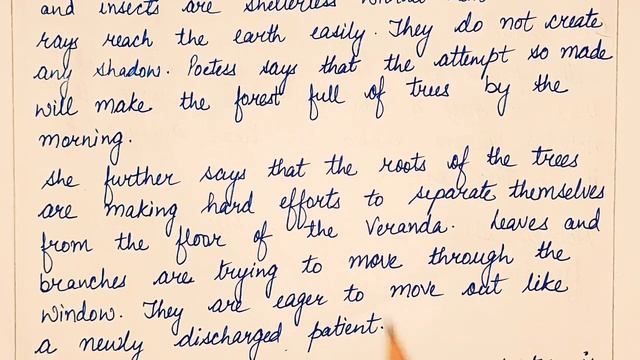 and insects are shelterless
rays reach the earth easily. They do not create
any shadow. Poetess says that the attempt so made
will make the forest full of trees by the
morning.
she further says that the roots of the trees
are making hard efforts to separate themselves
from the floor of the Veranda. Leaves and
branches are trying to move through the
window. They are eager to move out like
a newly discharged patient.